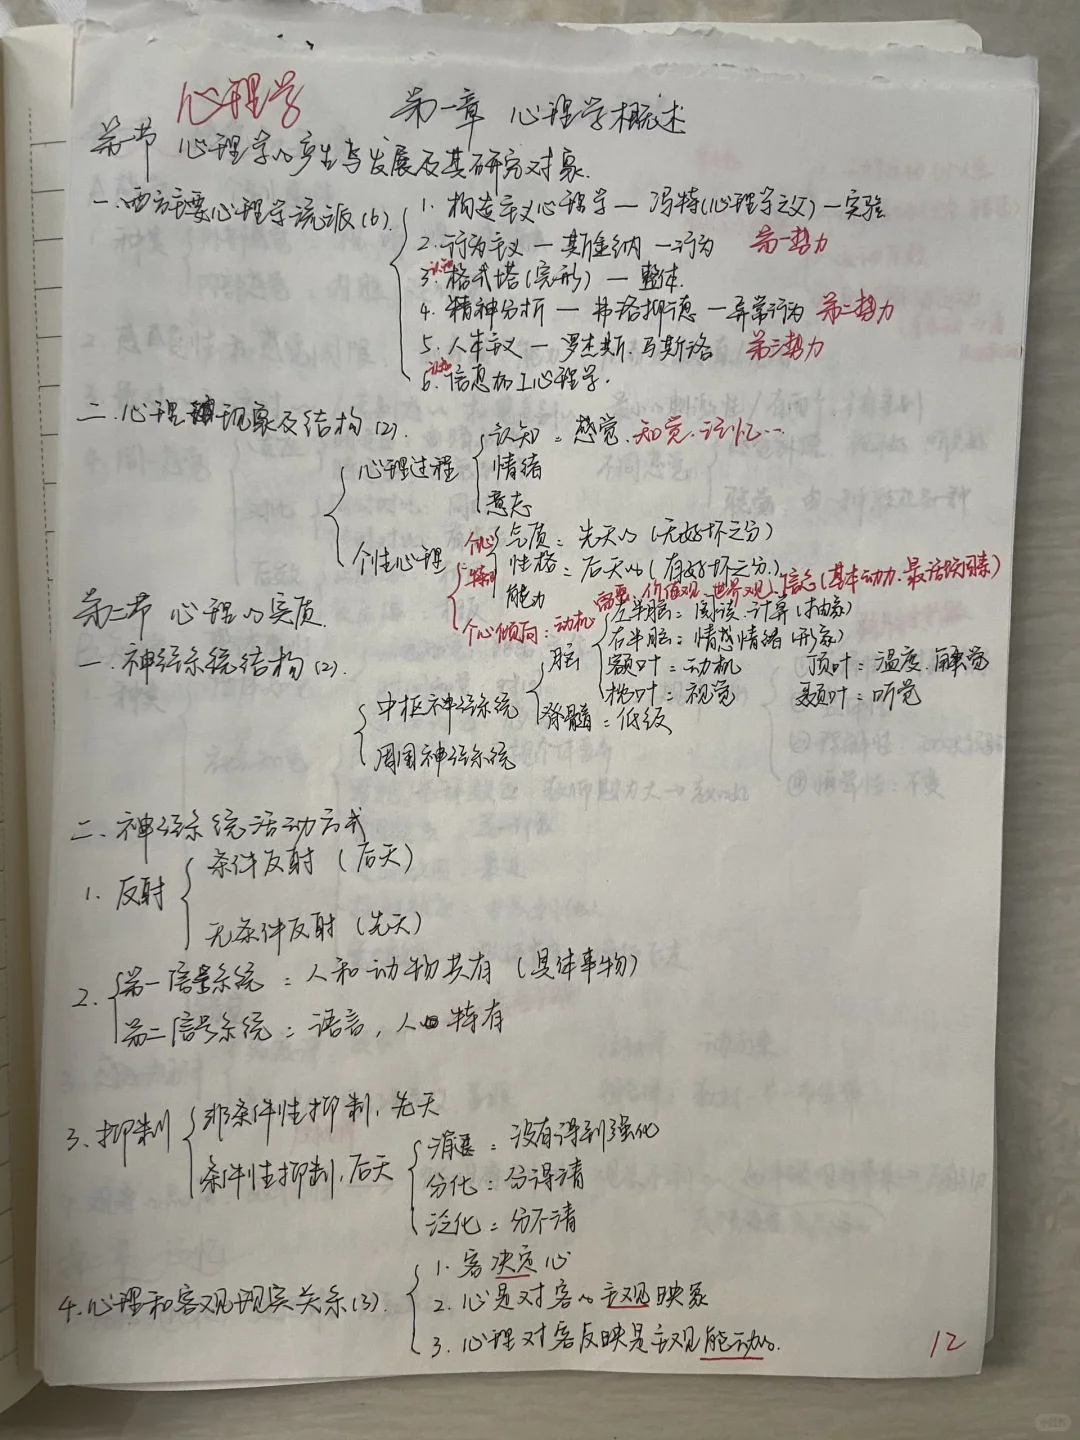 心理学
第一章 心理学概述
第一节 心理学的产生与发展及其研究对象.
一.西方主要心理学流派(6)
1. 构造主义心理学 — 冯特(心理学之父) — 实验
2. 行为主义 — 斯金纳 — 行为 第一势力
认知
3. 格式塔(完形) — 整体.
4. 精神分析 — 弗洛抑德 — 异常行为 第二势力
5. 人本主义 — 罗杰斯.马斯洛 第三势力
认知
6. 信息加工心理学.
二.心理现象及结构(2).
心理过程
认知:感觉.知觉.记忆…
情绪
意志
个性心理
个心特制
气质:先天的(无好坏之分)
性格:后天的(有好坏之分.)
能力
个心倾向:动机 需要.价值观.世界观.信念(基本动力.最活跃因素)
第二节 心理的实质.
一.神经系统结构(2).
中枢神经系统
脑
左半脑:阅读.计算(抽象)
右半脑:情感情绪(形象)
额叶:动机 顶叶:温度.触觉
枕叶:视觉 颞叶:听觉
脊髓:低级
周围神经系统
二.神经系统活动方式
1. 反射
条件反射(后天)
无条件反射(先天)
2.
第一信号系统:人和动物共有(具体事物)
第二信号系统:语言,人的特有
3.抑制
非条件性抑制.先天
条件性抑制.后天
消退:没有得到强化
分化:分得清
泛化:分不清
4.心理和客观现实关系(3).
1. 客决定心
2. 心是对客的主观映象
3. 心理对客反映是主观能动的.
12
小红书